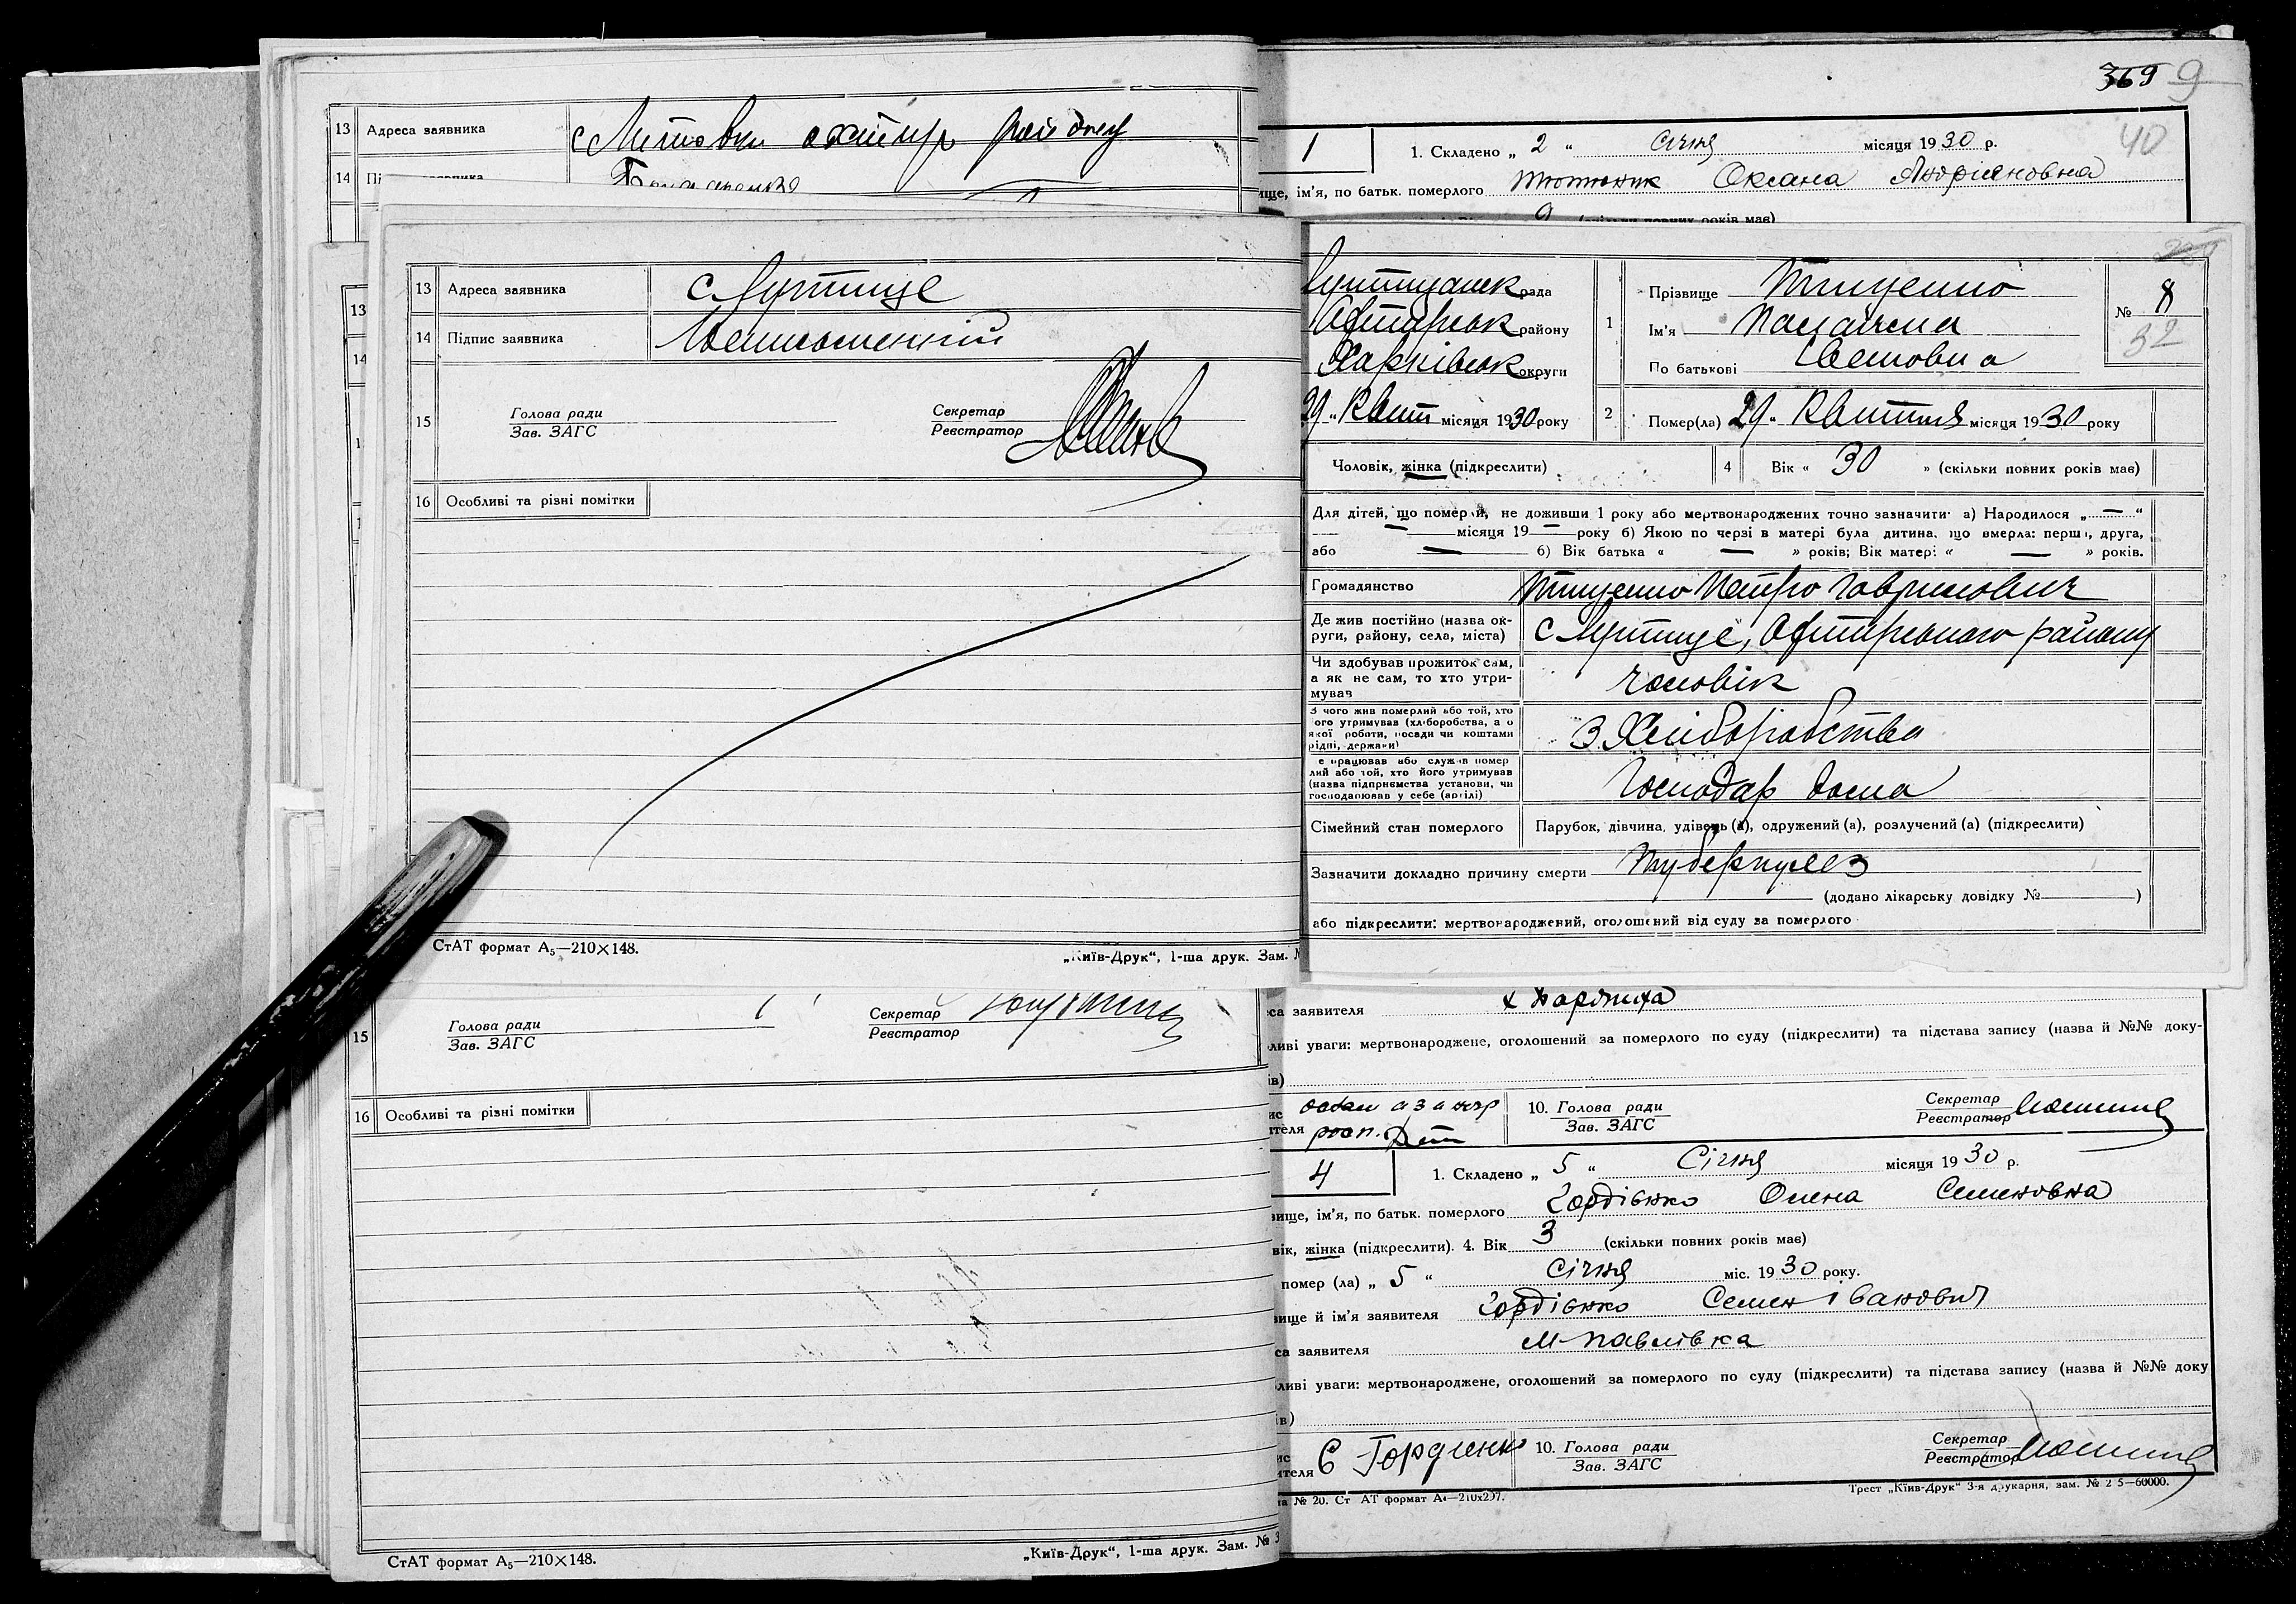 13 Адреса заявника
14
369 9
40
1
1. Складено „ 2 “ Січня місяця 1930 р.
ім'я, по батьк. померлого Тютюник Оксана Андріяновна
9
13 Адреса заявника с Лутище
14 Підпис заявника Неписьменний
15 Голова ради
Зав. ЗАГС
Секретар
Реєстратор
16 Особливі та різні помітки
СтАТ формат А5—210×148.
„Київ-Друк“, 1-ша друк. Зам.
рада
Охтирськ району
Харківськ округи
29 „ Квіт місяця 1930 року
1 Прізвище Тищенко
Ім'я
По батькові
№ 8
32
2 Помер(ла) 29 „ Квітня місяця 1930 року
Чоловік, жінка (підкреслити)
4 Вік « 30 » (скільки повних років має)
Для дітей, що померли, не доживши 1 року або мертвонароджених точно зазначити: а) Народилося „ — “
— місяця 19 — року б) Якою по черзі в матері була дитина, що вмерла: перша, друга,
або — б) Вік батька « — » років; Вік матері « — » років.
Громадянство Тищенко Петро Гаврилович
Де жив постійно (назва ок-
руги, району, села, міста) с Лутище, Охтирського району
Чи здобував прожиток сам,
а як не сам, то хто утри-
мував чоловік
З чого жив померлий або той, хто
ого утримував (хліборобства, а о
якої роботи, посади чи коштами
рідні, держави) З Хліборобства
е працював або служив помер
лий або той, хто його утримував
(назва підприємства установи, чи
господарював у себе (артілі) Господар дома
Сімейний стан померлого Парубок, дівчина, удівець (а), одружений (а), розлучений (а) (підкреслити)
Зазначити докладно причину смерти Туберкульоз
(додано лікарську довідку № )
або підкреслити: мертвонароджений, оголошений від суду за померлого
15 Голова ради
Зав. ЗАГС
Секретар
Реєстратор
16 Особливі та різні помітки
СтАТ формат А5—210×148.
„Київ-Друк“, 1-ша друк. Зам. № 3
са заявителя
ливі уваги: мертвонароджене, оголошений за померлого по суду (підкреслити) та підстава запису (назва й №№ доку-
ів)
10. Голова ради
Зав. ЗАГС
Секретар
Реєстратор
4
1. Складено „ 5 “ Січня місяця 1930 р.
вище, ім'я, по батьк. померлого Гордієнко Олена Семеновна
вік, жінка (підкреслити). 4. Вік 3 (скільки повних років має)
помер (ла) „ 5 “ Січня міс. 1930 року.
вище й ім'я заявителя Гордієнко Семен Іванович
са заявителя М-Павлівка
ливі уваги: мертвонароджене, оголошений за померлого по суду (підкреслити) та підстава запису (назва й №№ доку
ів)
ис
ителя С Гордиенко
10. Голова ради
Зав. ЗАГС
Секретар
Реєстратор
№ 20. Ст АТ формат А4—210х297.
Трест „Київ-Друк“ 3-я друкарня, зам. № 2 5—60000.